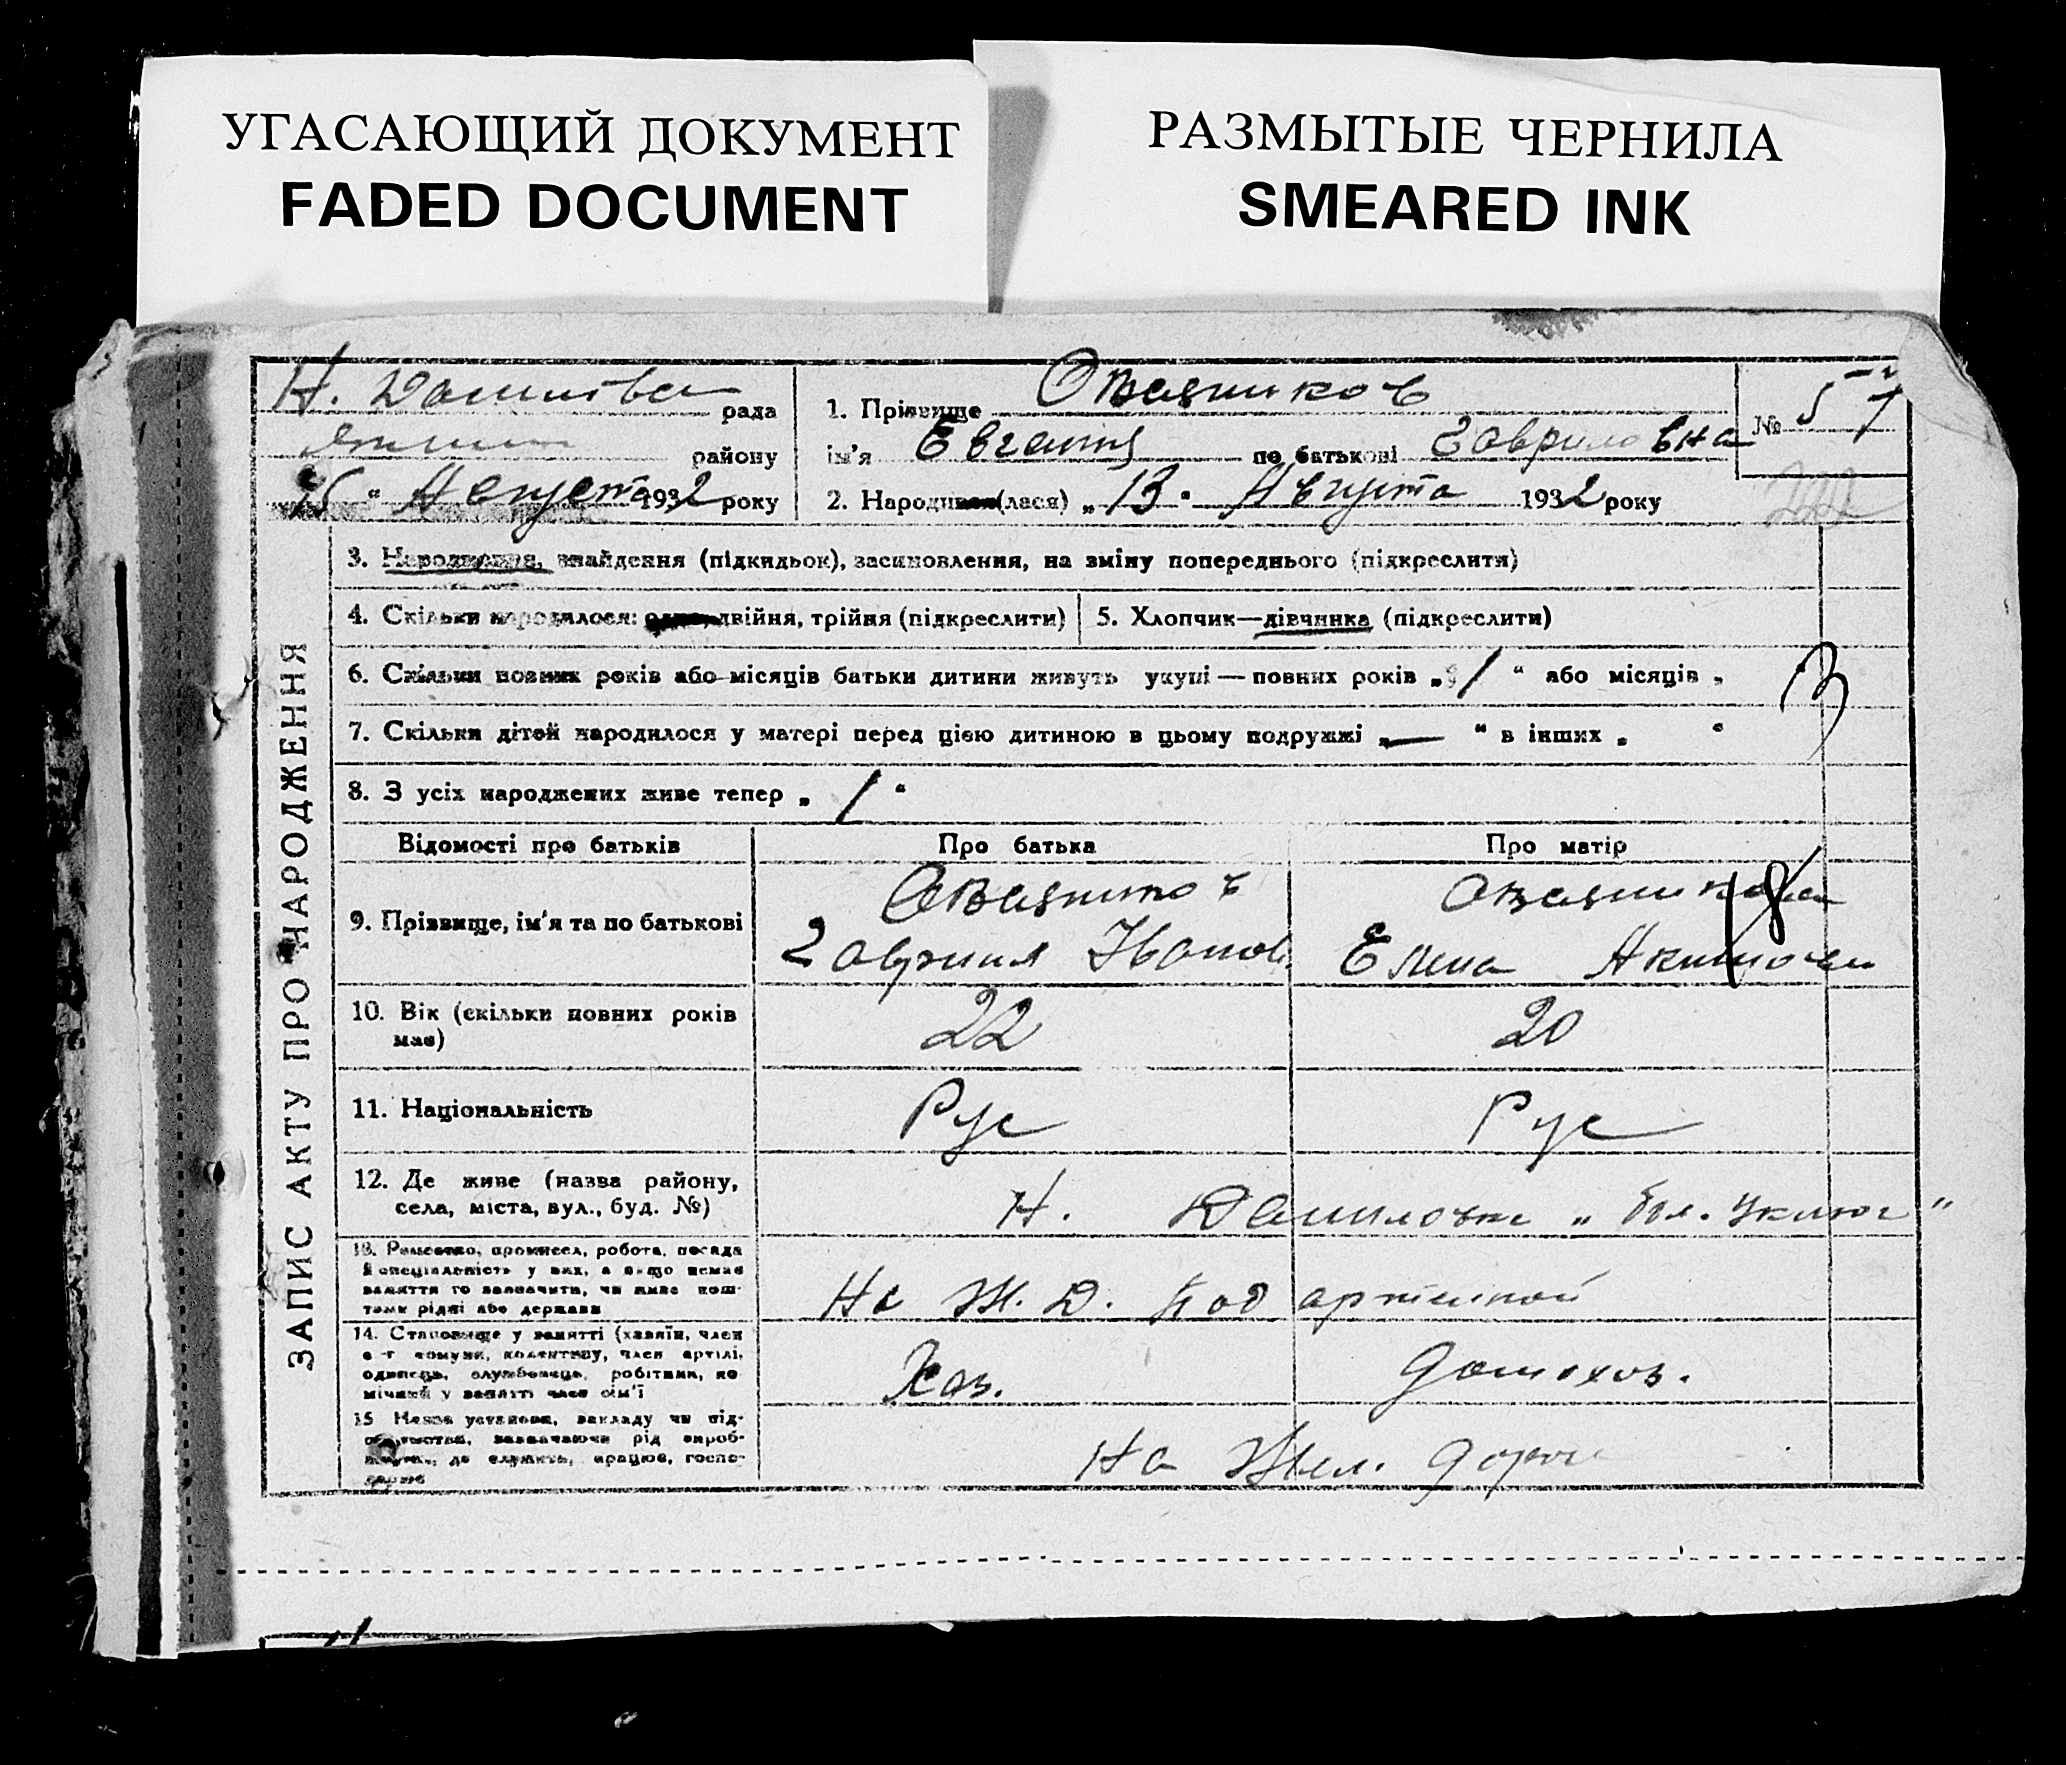 УГАСАЮЩИЙ ДОКУМЕНТ
FADED DOCUMENT
РАЗМЫТЫЕ ЧЕРНИЛА
SMEARED INK
ЗАПИС АКТУ ПРО НАРОДЖЕННЯ
Н. рада
району
15 " Августа 1932 року
1. Прізвище
№ 57
ім'я Евгения по батькові Гавриловна
2. Народився (лася) „ 13 " Августа 1932 року
3. Народження, знайдення (підкидьок), засиновлення, на зміну попереднього (підкреслити)
4. Скільки народилося: одно, двійня, трійня (підкреслити)
5. Хлопчик—дівчинка (підкреслити)
6. Скільки повних років або місяців батьки дитини живуть укупі — повних років „ 1 " або місяців „
7. Скільки дітей народилося у матері перед цією дитиною в цьому подружжі „ — " в інших „ "
8. З усіх народжених живе тепер „ 1 "
Відомості про батьків
Про батька
Про матір
9. Прізвище, ім'я та по батькові
Гавриил Иванов.
Елена
10. Вік (скільки повних років має)
22
20
11. Національність
Рус
Рус
12. Де живе (назва району,
села, міста, вул., буд. №)
Н.
13. Ремество, промисел, робота, посада
й спеціальність у них, а якщо немає
заняття то зазначити, чи живе кош-
тами рідні або держави
На Ж. Д. Под
14. Становище у занятті (хазяїн, член
с-г комуни, колективу, член артілі,
одинець, службовець, робітник, по-
мічний у занятті член сім'ї
Хаз.
домохоз.
15 Назва установи, закладу чи під-
приємства, зазначаючи рід вироб-
ництва, де служить, працює, госпо-
дарює
На Жел. дороге